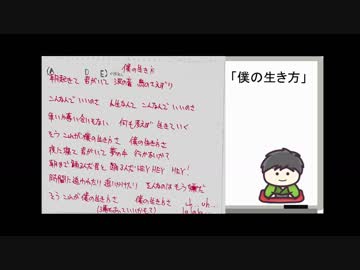 僕の生き方
(A D E)
朝起きて 君がいて 波の音 鳥のさえずり
こんなんで いいのさ 人生なんて こんなんで いいのさ
辛いの苦い合じもない 何も考えず 生きていく
そう これが僕の生き方さ 僕の生き方さ
夜に寝て 君がいて 夢の中 行かないか?
朝まで踊るんだ君と 踊るんだ HEY HEY HEY!
時間に追われたり 追いかけたり そんなのは もう嫌だ
そう これが僕の生き方さ 僕の生き方さ
uh.. uh...
(3番もあっていいかも?)
la lah...
「僕の生き方」